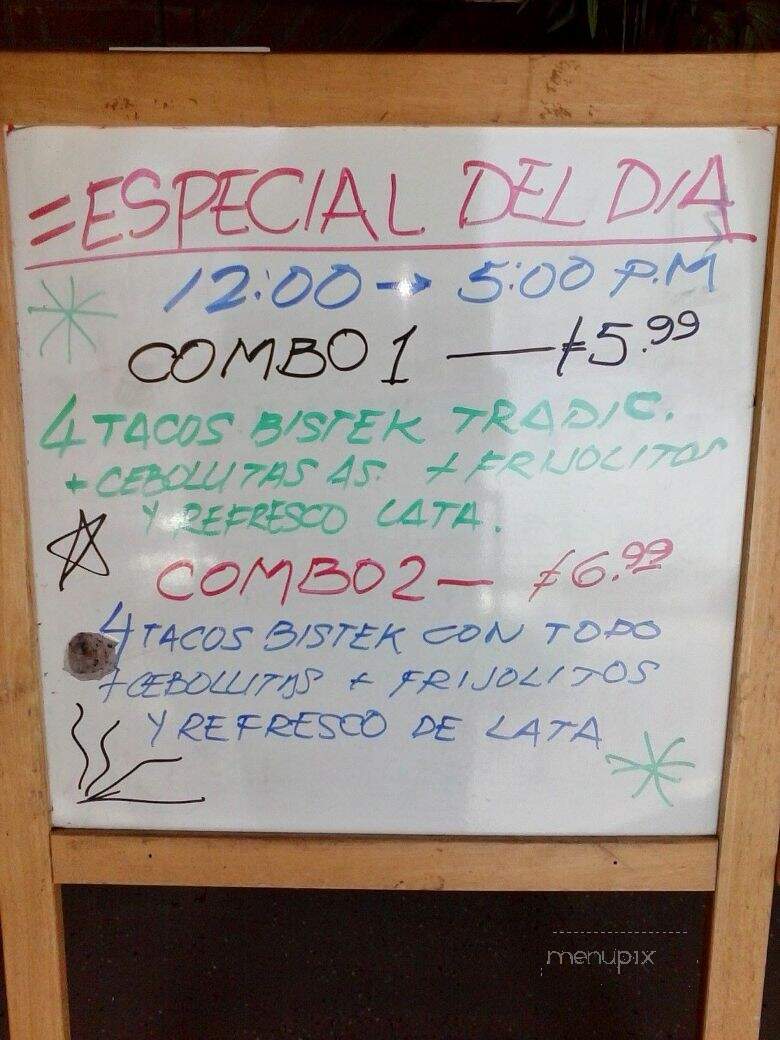 =ESPECIAL DEL DIA
12:00 → 5:00 P.M
COMBO 1 — $5.99
4 TACOS BISTEK TRADIC.
+ CEBOLLITAS AS. + FRIJOLITOS
Y REFRESCO LATA.
COMBO 2 — $6.99
4 TACOS BISTEK CON TODO
+ CEBOLLITAS + FRIJOLITOS
Y REFRESCO DE LATA
menupix